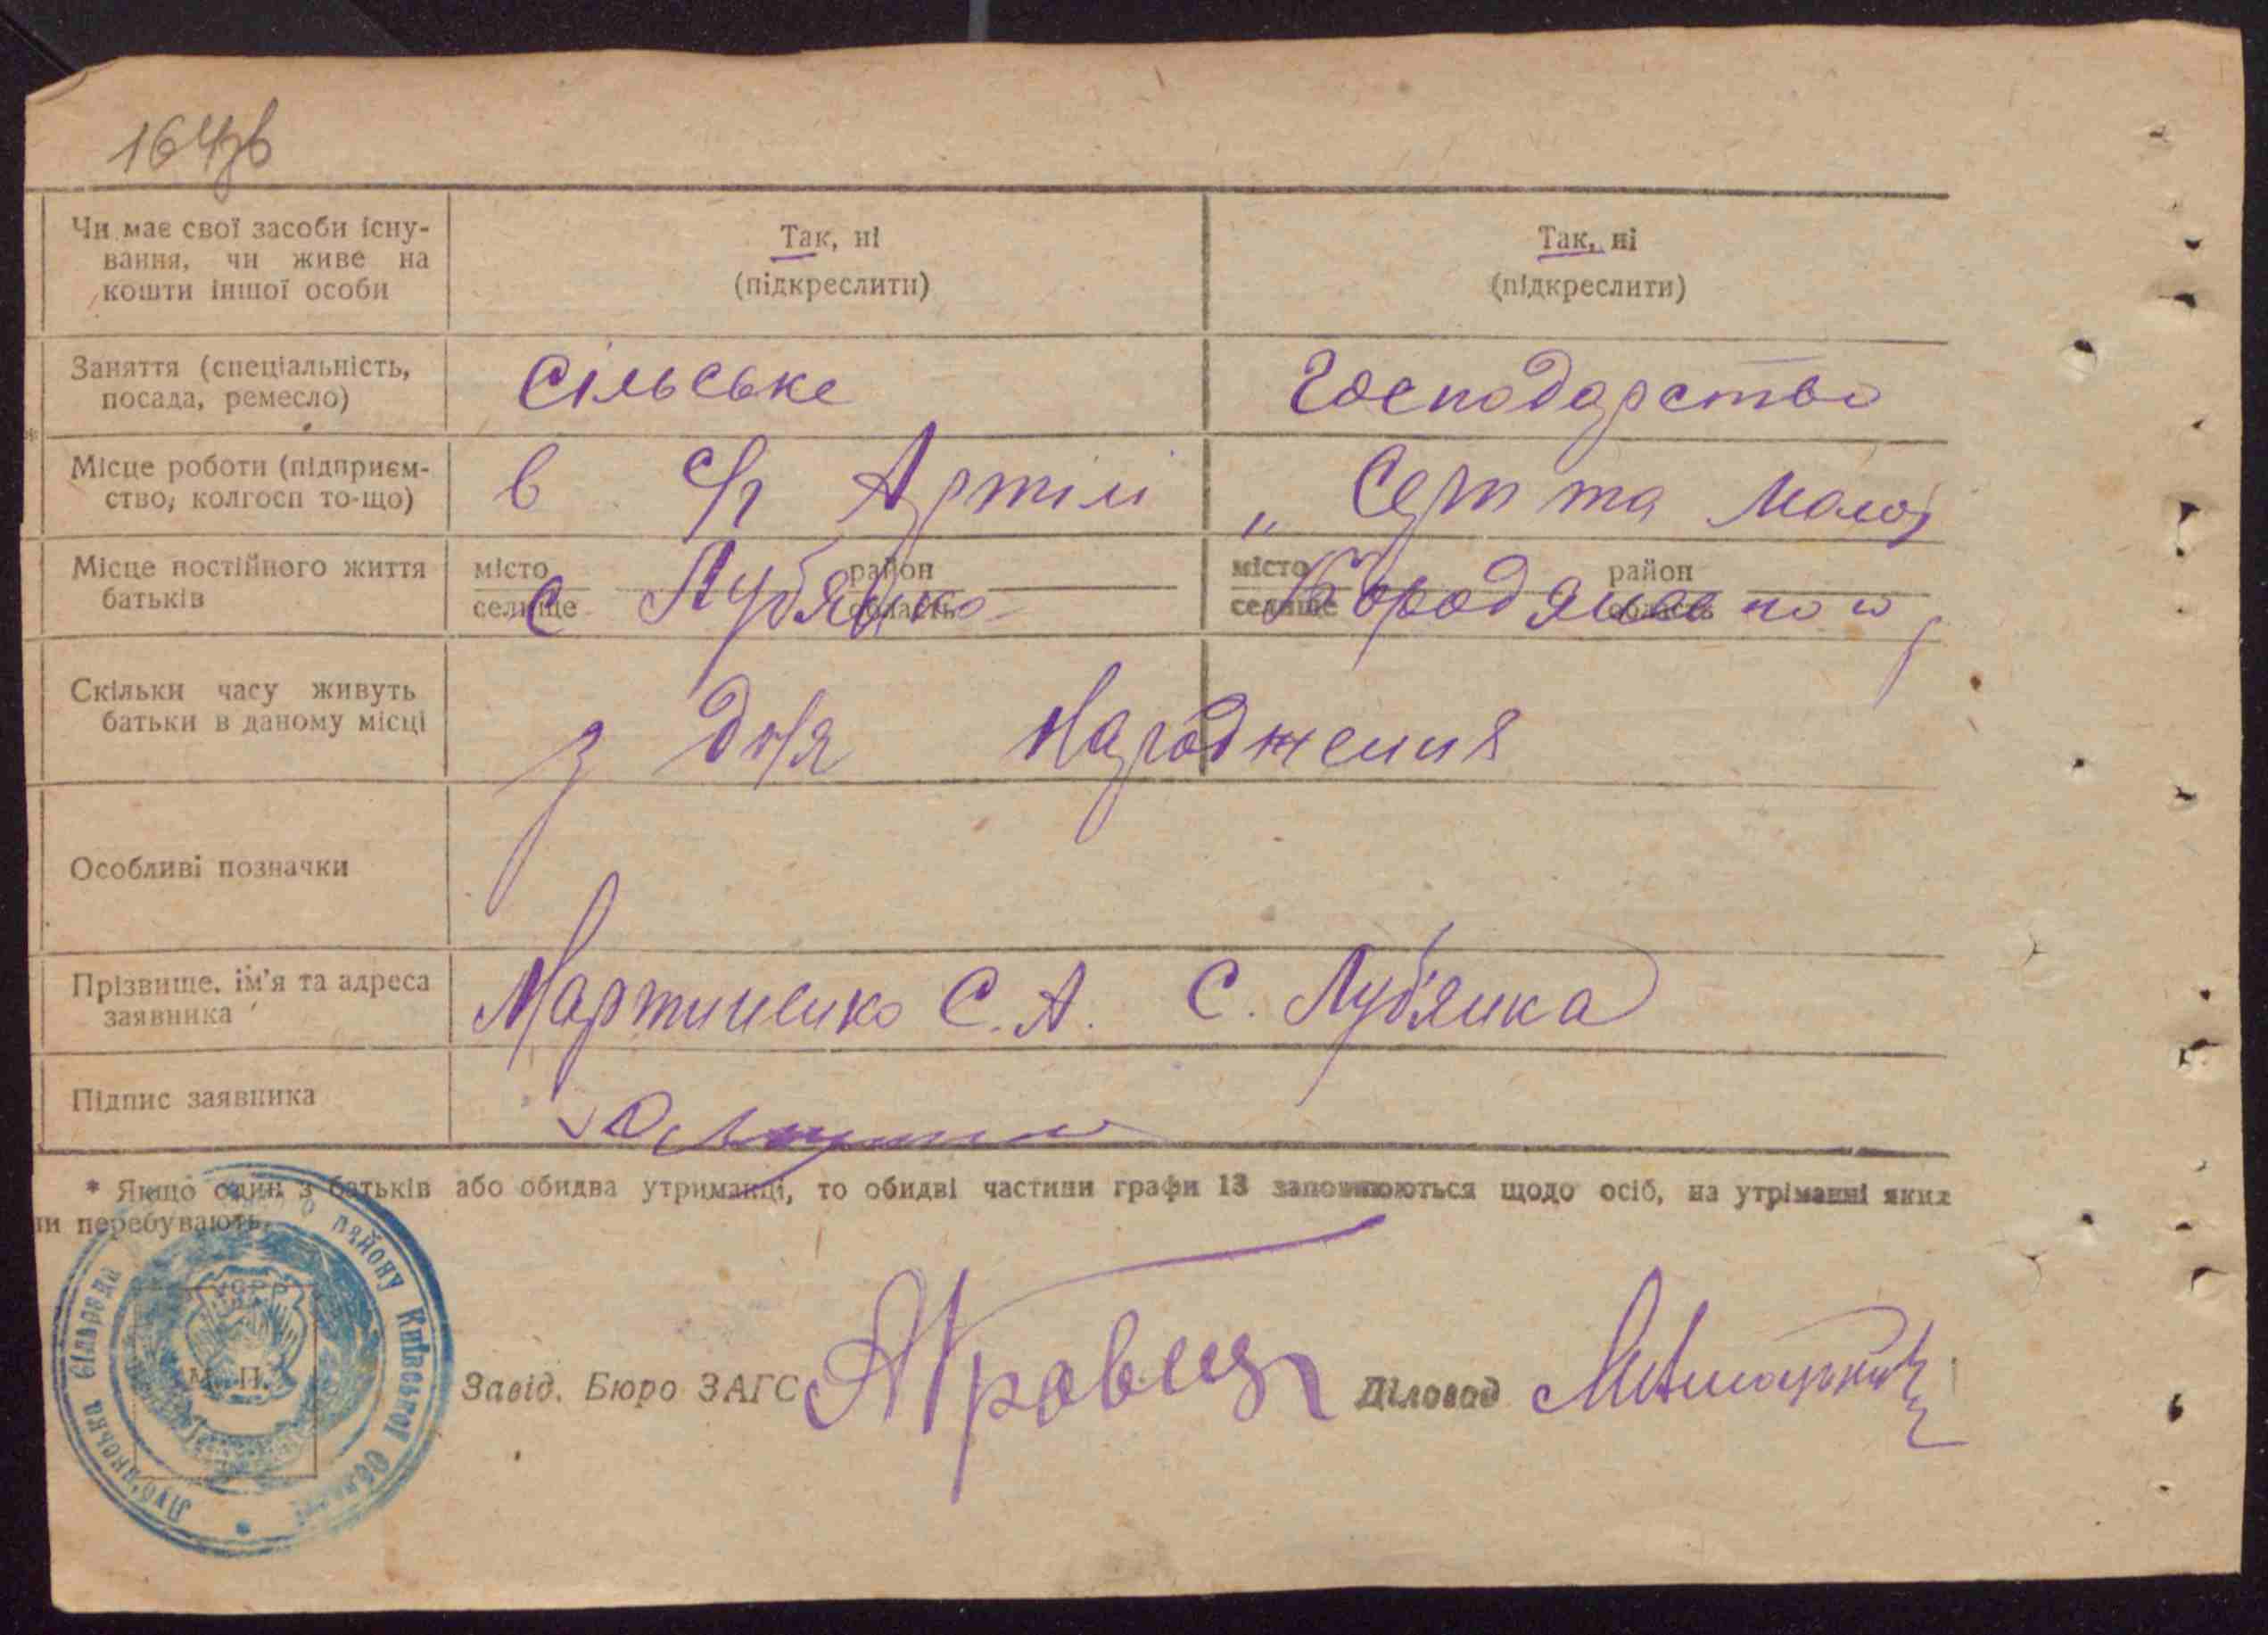 164зв
Чи має свої засоби існу-
вання, чи живе на
кошти іншої особи
Так, ні
(підкреслити)
Так, ні
(підкреслити)
Заняття (спеціальність,
посада, ремесло)
Сільське
Господарство
Місце роботи (підприєм-
ство, колгосп то-що)
в с/г Артілі
„ Серп та Молот
Місце постійного життя
батьків
місто
район
селище
область
с Лубянка
місто
район
селище
область
Бородянського р
Скільки часу живуть
батьки в даному місці
з дня народження
Особливі позначки
Прізвище, ім'я та адреса
заявника
Мартиненко С. А. С. Луб'янка
Підпис заявника
* Якщо один з батьків або обидва утриманці, то обидві частини графи 13 заповнюються щодо осіб, на утріманні яких
ни перебувають.
Луб'янська сільрада
району Київської Області
УСРР
М. П.
Завід. Бюро ЗАГС
Діловод